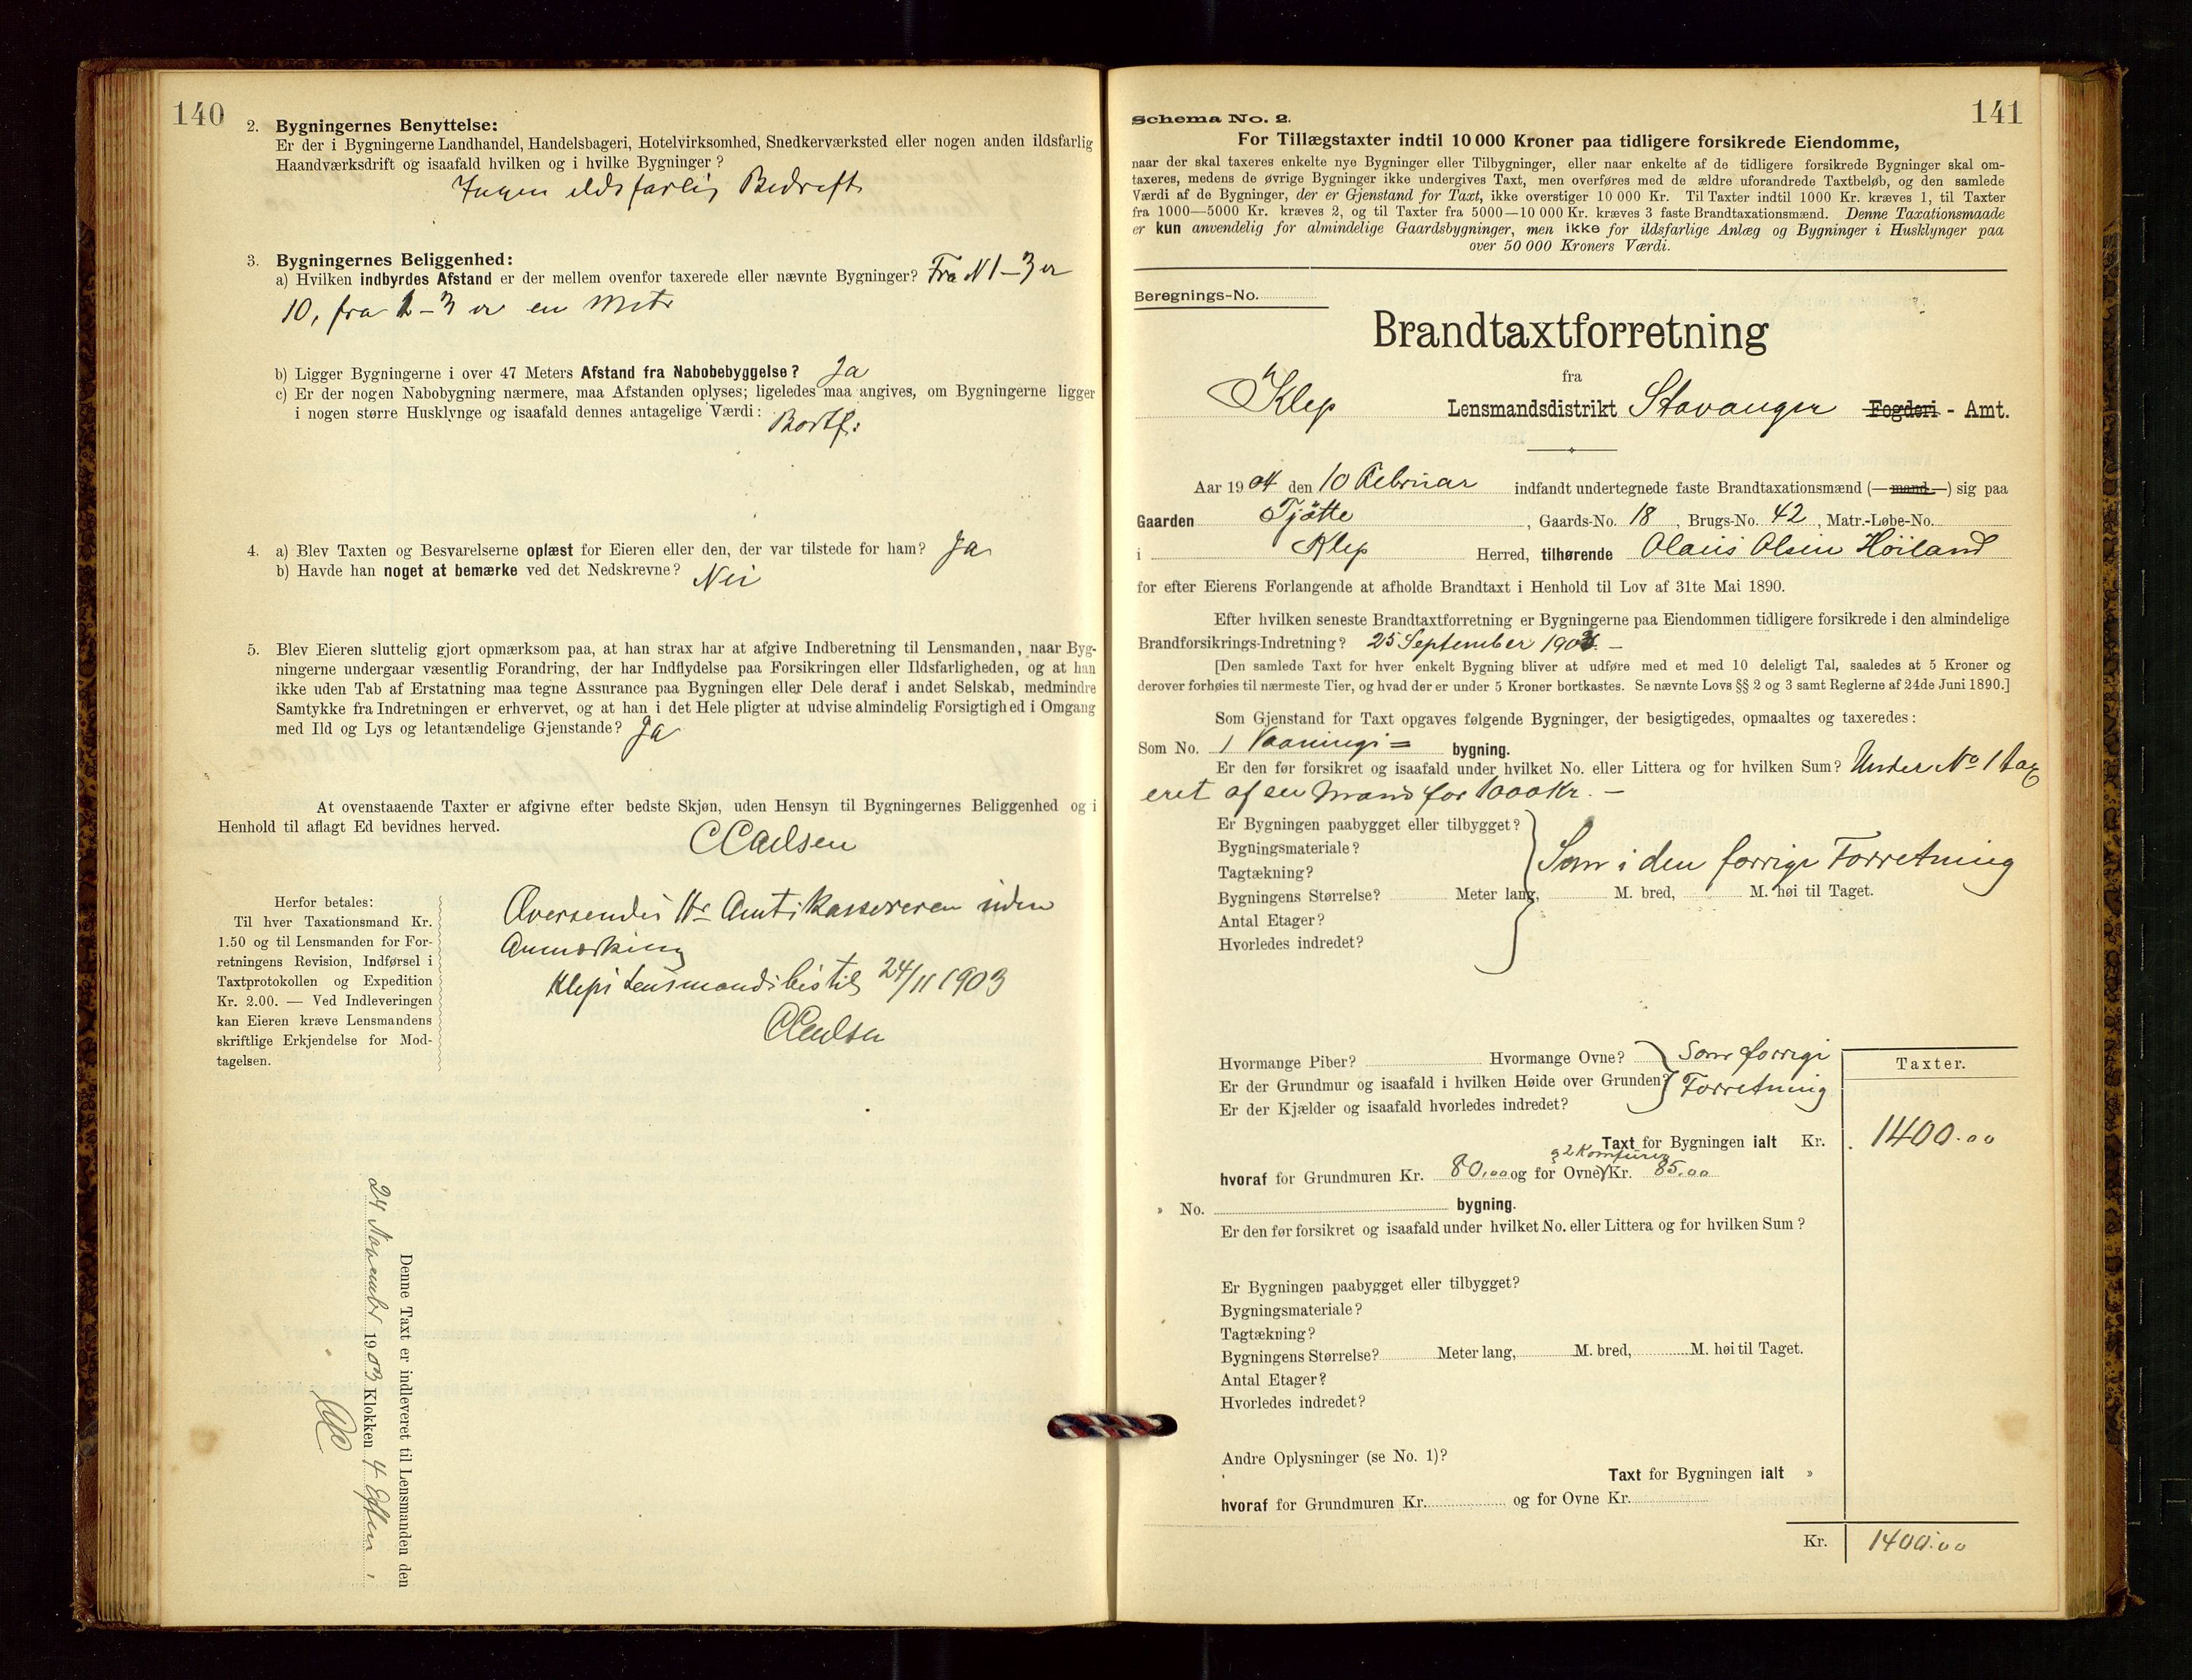 140
2. Bygningernes Benyttelse:
Er der i Bygningerne Landhandel, Handelsbageri, Hotelvirksomhed, Snedkerværksted eller nogen anden ildsfarlig
Haandværksdrift og isaafald hvilken og i hvilke Bygninger?
Ingen ildsfarlig Bedrift
3. Bygningernes Beliggenhed:
a) Hvilken indbyrdes Afstand er der mellem ovenfor taxerede eller nævnte Bygninger? Fra N 1-3 er
10, fra -3 er en Metr
b) Ligger Bygningerne i over 47 Meters Afstand fra Nabobebyggelse? Ja
c) Er der nogen Nabobygning nærmere, maa Afstanden oplyses; ligeledes maa angives, om Bygningerne ligger
i nogen større Husklynge og isaafald dennes antagelige Værdi: Bortf:
4. a) Blev Taxten og Besvarelserne oplæst for Eieren eller den, der var tilstede for ham? Ja
b) Havde han noget at bemærke ved det Nedskrevne? Nei
5. Blev Eieren sluttelig gjort opmærksom paa, at han strax har at afgive Indberetning til Lensmanden, naar Byg-
ningerne undergaar væsentlig Forandring, der har Indflydelse paa Forsikringen eller Ildsfarligheden, og at han
ikke uden Tab af Erstatning maa tegne Assurance paa Bygningen eller Dele deraf i andet Selskab, medmindre
Samtykke fra Indretningen er erhvervet, og at han i det Hele pligter at udvise almindelig Forsigtighed i Omgang
med Ild og Lys og letantændelige Gjenstande? Ja
At ovenstaaende Taxter er afgivne efter bedste Skjøn, uden Hensyn til Bygningernes Beliggenhed og i
Henhold til aflagt Ed bevidnes herved.
Herfor betales:
Til hver Taxationsmand Kr.
1.50 og til Lensmanden for For-
retningens Revision, Indførsel i
Taxtprotokollen og Expedition
Kr. 2.00. — Ved Indleveringen
kan Eieren kræve Lensmandens
skriftlige Erkjendelse for Mod-
tagelsen.
Oversendes Hr Amtskassereren uden
Anmærkning
Kleps Lensmandsbestil 24/11 1903
Denne Taxt er indleveret til Lensmanden den
24 November 1903 Klokken 4 Eftm
141
Schema No. 2.
For Tillægstaxter indtil 10 000 Kroner paa tidligere forsikrede Eiendomme,
naar der skal taxeres enkelte nye Bygninger eller Tilbygninger, eller naar enkelte af de tidligere forsikrede Bygninger skal om-
taxeres, medens de øvrige Bygninger ikke undergives Taxt, men overføres med de ældre uforandrede Taxtbeløb, og den samlede
Værdi af de Bygninger, der er Gjenstand for Taxt, ikke overstiger 10 000 Kr. Til Taxter indtil 1000 Kr. kræves 1, til Taxter
fra 1000—5000 Kr. kræves 2, og til Taxter fra 5000—10 000 Kr. kræves 3 faste Brandtaxationsmænd. Denne Taxationsmaade
er kun anvendelig for almindelige Gaardsbygninger, men ikke for ildsfarlige Anlæg og Bygninger i Husklynger paa
over 50 000 Kroners Værdi.
Beregnings-No.
Brandtaxtforretning
fra
Klep Lensmandsdistrikt Stavanger Fogderi - Amt.
Aar 1904 den 10 Februar indfandt undertegnede faste Brandtaxationsmænd (—mand—) sig paa
Gaarden Tjøtte, Gaards-No. 18, Brugs-No. 42, Matr.-Løbe-No.
i Klep Herred, tilhørende Olaus Olsen Höiland
for efter Eierens Forlangende at afholde Brandtaxt i Henhold til Lov af 31te Mai 1890.
Efter hvilken seneste Brandtaxtforretning er Bygningerne paa Eiendommen tidligere forsikrede i den almindelige
Brandforsikrings-Indretning? 25 September 1903. –
[Den samlede Taxt for hver enkelt Bygning bliver at udføre med et med 10 deleligt Tal, saaledes at 5 Kroner og
derover forhøies til nærmeste Tier, og hvad der er under 5 Kroner bortkastes. Se nævnte Lovs §§ 2 og 3 samt Reglerne af 24de Juni 1890.]
Som Gjenstand for Taxt opgaves følgende Bygninger, der besigtigedes, opmaaltes og taxeredes:
Som No. 1 Vaanings= bygning.
Er den før forsikret og isaafald under hvilket No. eller Littera og for hvilken Sum? Under No 1 tax
eret af en Mand for 1000 Kr. –
Er Bygningen paabygget eller tilbygget?
Bygningsmateriale?
Tagtækning?
Som i den forrige Forretning
Bygningens Størrelse? Meter lang, M. bred, M. høi til Taget.
Antal Etager?
Hvorledes indredet?
Hvormange Piber? Hvormange Ovne? Som forrige
Er der Grundmur og isaafald i hvilken Høide over Grunden? Forretning
Er der Kjælder og isaafald hvorledes indredet?
Taxter.
Taxt for Bygningen ialt Kr. 1400.00
g 2 Komfurer
hvoraf for Grundmuren Kr. 80,00 og for Ovne Kr. 85.00
» No. bygning.
Er den før forsikret og isaafald under hvilket No. eller Littera og for hvilken Sum?
Er Bygningen paabygget eller tilbygget?
Bygningsmateriale?
Tagtækning?
Bygningens Størrelse? Meter lang, M. bred, M. høi til Taget.
Antal Etager?
Hvorledes indredet?
Andre Oplysninger (se No. 1)?
Taxt for Bygningen ialt »
hvoraf for Grundmuren Kr. og for Ovne Kr.
Kr. 1400.00